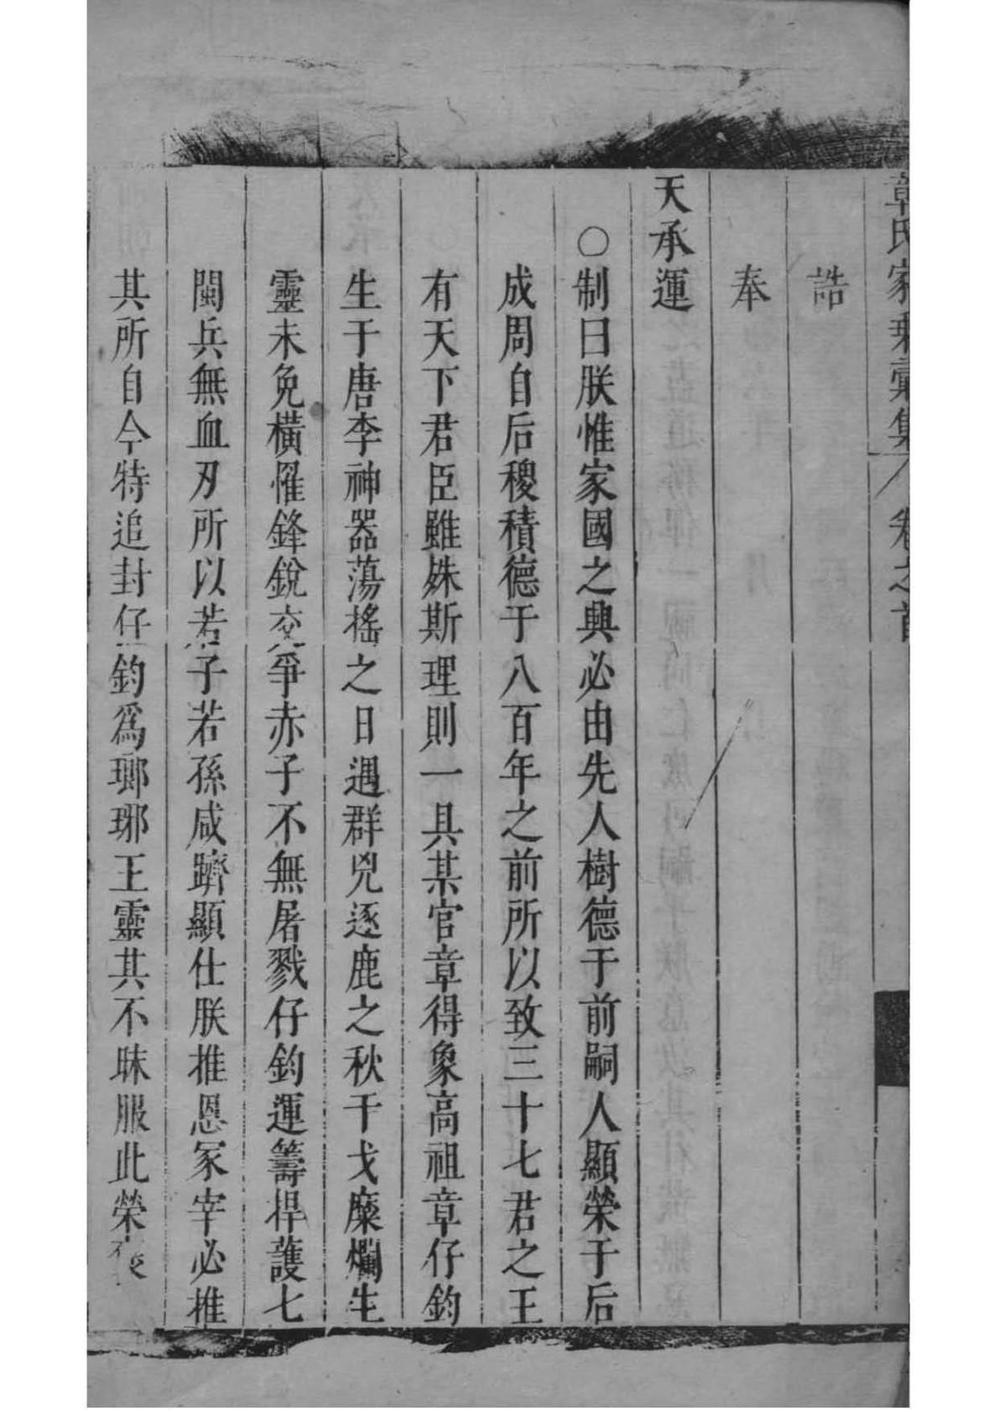 章氏家乘彙集 卷之首
誥
奉
天承運
○制曰朕惟家國之興必由先人樹德于前嗣人顯榮于后
成周自后稷積德于八百年之前所以致三十七君之王
有天下君臣雖姝斯理則一具某官章得象高祖章仔鈞
生于唐李神器蕩搖之日遇群兇逐鹿之秋干戈糜爛生
靈未免橫罹鋒銳交爭赤子不無屠戮仔鈞運籌捍䕶七
閩兵無血刃所以若子若孫咸躋顯仕朕推恩冢宰必推
其所自今特追封仔鈞爲瑯琊王靈其不昧服此榮